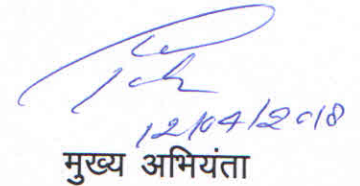 12/04/2018
मुख्य अभियंता